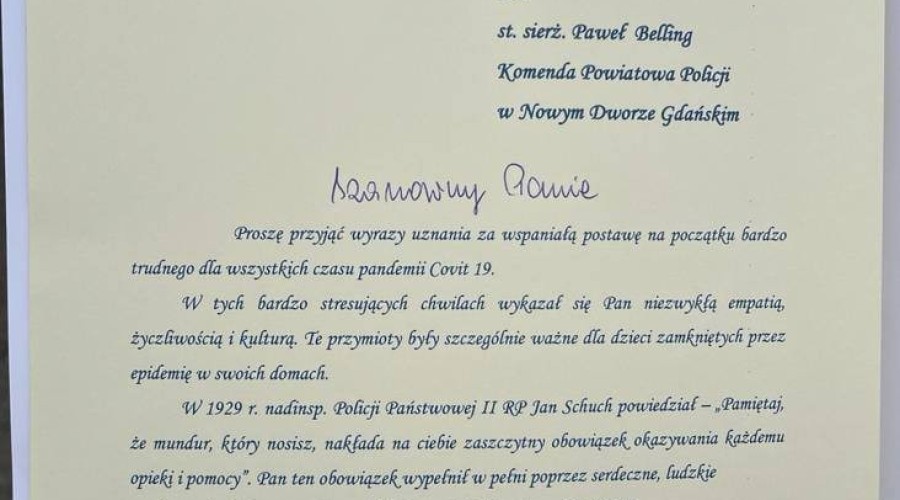 st. sierż. Paweł Belling
Komenda Powiatowa Policji
w Nowym Dworze Gdańskim
Szanowny Panie
Proszę przyjąć wyrazy uznania za wspaniałą postawę na początku bardzo
trudnego dla wszystkich czasu pandemii Covit 19.
W tych bardzo stresujących chwilach wykazał się Pan niezwykłą empatią,
życzliwością i kulturą. Te przymioty były szczególnie ważne dla dzieci zamkniętych przez
epidemię w swoich domach.
W 1929 r. nadinsp. Policji Państwowej II RP Jan Schuch powiedział – „Pamiętaj,
że mundur, który nosisz, nakłada na ciebie zaszczytny obowiązek okazywania każdemu
opieki i pomocy”. Pan ten obowiązek wypełnił w pełni poprzez serdeczne, ludzkie